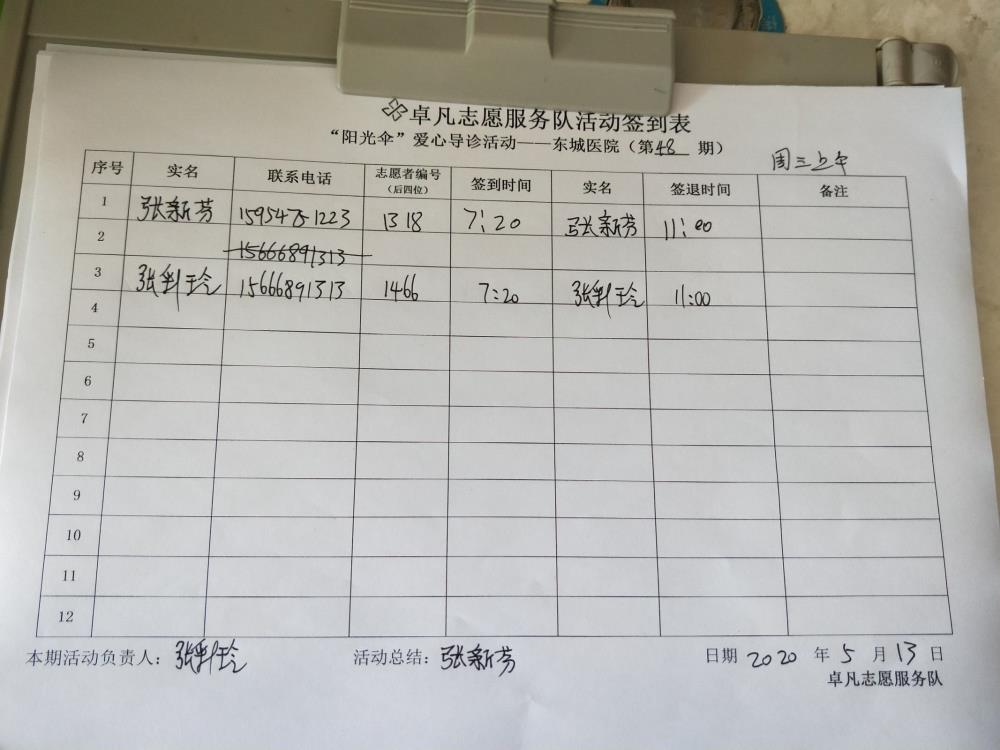 卓凡志愿服务队活动签到表
“阳光伞”爱心导诊活动——东城医院（第48期）
周三上午
序号 实名 联系电话 志愿者编号（后四位） 签到时间 实名 签退时间 备注
1 张新芳 15954781223 1318 7:20 张新芳 11:00
2 15666891313
3 张 玲 15666891313 1466 7:20 张 玲 11:00
4
5
6
7
8
9
10
11
12
本期活动负责人：张 玲 活动总结：张新芳 日期 2020 年 5 月 13 日
卓凡志愿服务队